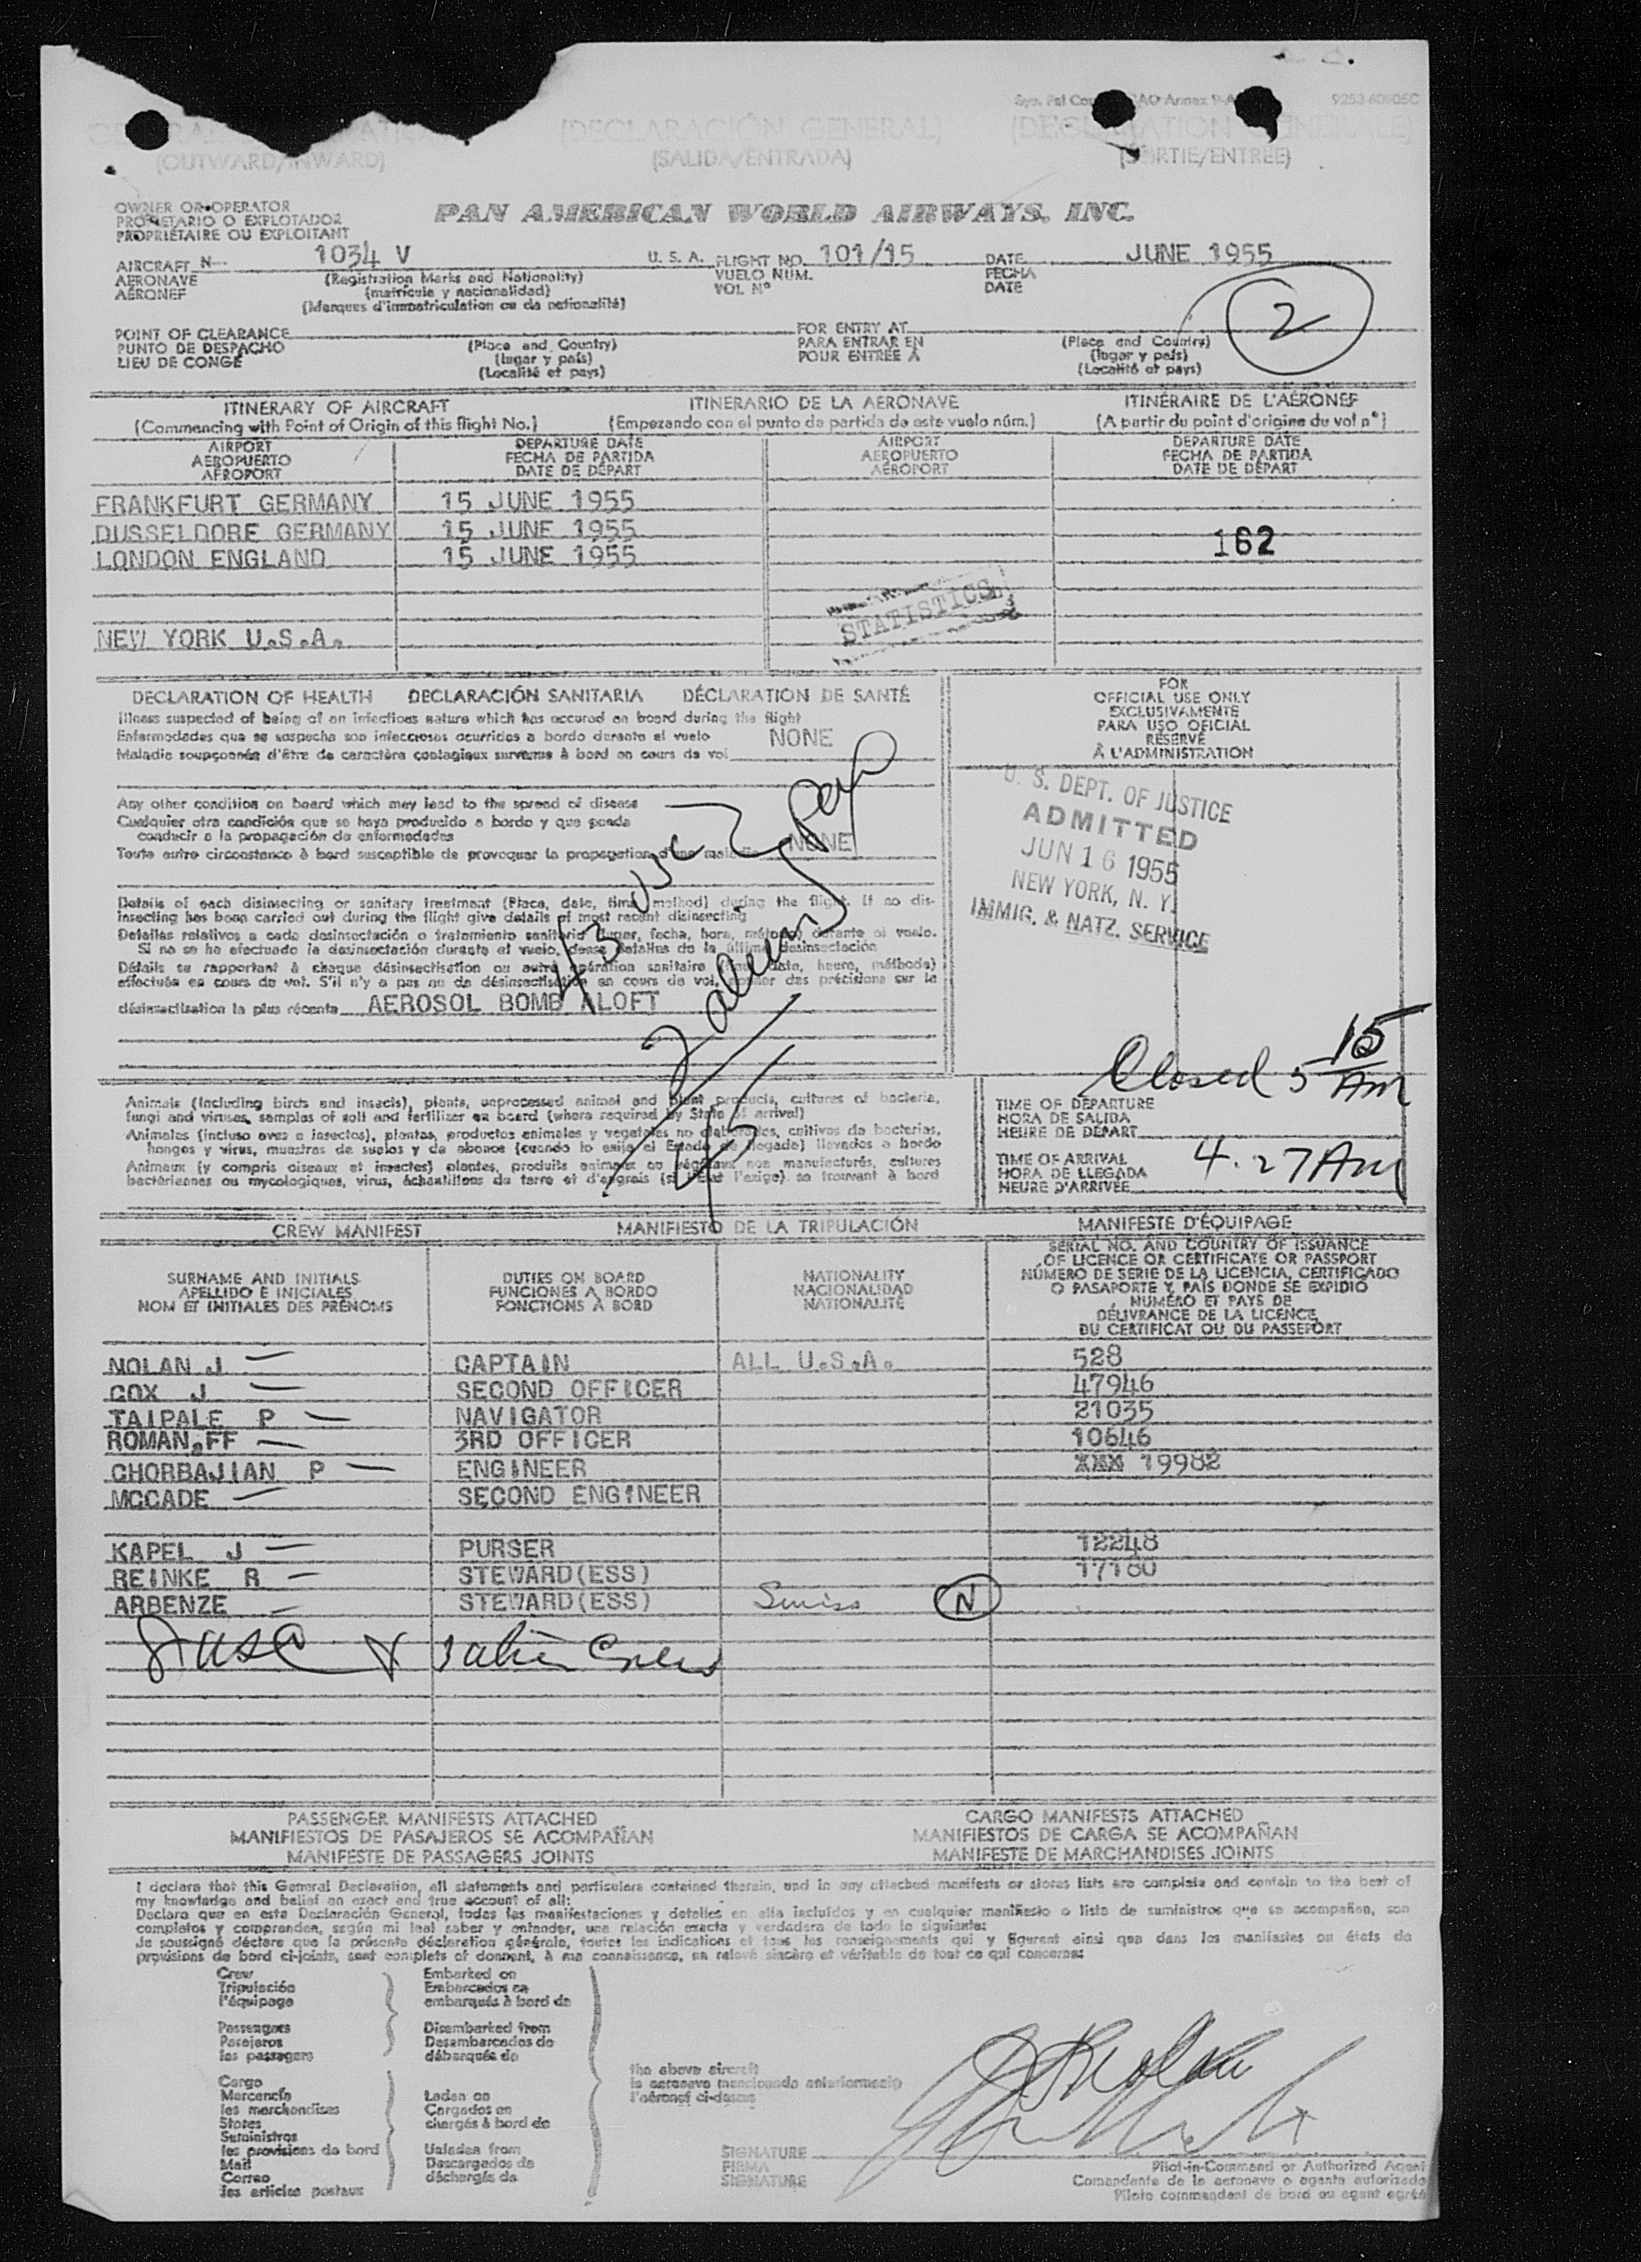 9253 60505C
(DECLARACIÓN GENERAL)
(OUTWARD/INWARD) (SALIDA/ENTRADA) (SORTIE/ENTRÉE)
OWNER OR OPERATOR
PROPIETARIO O EXPLOTADOR
PROPRIÉTAIRE OU EXPLOITANT
PAN AMERICAN WORLD AIRWAYS, INC.
AIRCRAFT N— 1034 V U. S. A. FLIGHT NO. 101/15 DATE JUNE 1955
AERONAVE (Registration Marks and Nationality) VUELO NUM. FECHA
AÉRONEF (matrícula y nacionalidad) VOL Nº DATE
(Marques d'immatriculation ou de nationalité)
2
POINT OF CLEARANCE FOR ENTRY AT
PUNTO DE DESPACHO (Place and Country) PARA ENTRAR EN (Place and Country)
LIEU DE CONGÉ (lugar y país) POUR ENTRÉE À (lugar y país)
(Localité et pays) (Localité et pays)
ITINERARY OF AIRCRAFT ITINERARIO DE LA AERONAVE ITINÉRAIRE DE L'AÉRONEF
(Commencing with Point of Origin of this flight No.) (Empezando con el punto de partida de este vuelo núm.) (A partir du point d'origine du vol nº)
AIRPORT DEPARTURE DATE AIRPORT DEPARTURE DATE
AEROPUERTO FECHA DE PARTIDA AEROPUERTO FECHA DE PARTIDA
AÉROPORT DATE DE DÉPART AÉROPORT DATE DE DÉPART
FRANKFURT GERMANY 15 JUNE 1955
DUSSELDORE GERMANY 15 JUNE 1955 162
LONDON ENGLAND 15 JUNE 1955
STATISTICS
NEW YORK U.S.A.
DECLARATION OF HEALTH DECLARACIÓN SANITARIA DÉCLARATION DE SANTÉ
Illness suspected of being of an infectious nature which has occured on board during the flight
Enfermedades que se sospecha son infecciosas ocurridas a bordo durante el vuelo NONE
Maladie soupçonnée d'être de caractère contagieux survenue à bord en cours de vol
FOR
OFFICIAL USE ONLY
EXCLUSIVAMENTE
PARA USO OFICIAL
RÉSERVÉ
À L'ADMINISTRATION
Any other condition on board which may lead to the spread of disease
Cualquier otra condición que se haya producido a bordo y que pueda
conducir a la propagación de enfermedades
Toute autre circonstance à bord susceptible de provoquer la propagation d'une maladie NONE
U. S. DEPT. OF JUSTICE
ADMITTED
JUN 16 1955
NEW YORK, N. Y.
IMMIG. & NATZ. SERVICE
Details of each disinsecting or sanitary treatment (Place, date, time, method) during the flight. If no dis-
insecting has been carried out during the flight give details of most recent disinsecting
Detalles relativos a cada desinsectación o tratamiento sanitario (lugar, fecha, hora, método) durante el vuelo.
Si no se ha efectuado la desinsectación durante el vuelo, dense detalles de la última desinsectación
Détails se rapportant à chaque désinsectisation ou autre opération sanitaire (lieu, date, heure, méthode)
effectuée en cours de vol. S'il n'y a pas eu de désinsectisation en cours de vol, donner des précisions sur la
désinsectisation la plus récente AEROSOL BOMB ALOFT
43
Closed 5 15 AM
Animals (including birds and insects), plants, unprocessed animal and plant products, cultures of bacteria,
fungi and viruses, samples of soil and fertilizer on board (where required by State of arrival)
Animales (incluso aves e insectos), plantas, productos animales y vegetales no elaborados, cultivos de bacterias,
hongos y virus, muestras de suelos y de abonos (cuando lo exija el Estado de llegada) llevados a bordo
Animaux (y compris oiseaux et insectes) plantes, produits animaux ou végétaux non manufacturés, cultures
bactériennes ou mycologiques, virus, échantillons de terre et d'engrais (si l'État l'exige) se trouvant à bord
TIME OF DEPARTURE
HORA DE SALIDA
HEURE DE DÉPART
TIME OF ARRIVAL 4.27 AM
HORA DE LLEGADA
HEURE D'ARRIVÉE
CREW MANIFEST MANIFIESTO DE LA TRIPULACIÓN MANIFESTE D'ÉQUIPAGE
SURNAME AND INITIALS
APELLIDO E INICIALES
NOM ET INITIALES DES PRÉNOMS
DUTIES ON BOARD
FUNCIONES A BORDO
FONCTIONS À BORD
NATIONALITY
NACIONALIDAD
NATIONALITÉ
SERIAL NO. AND COUNTRY OF ISSUANCE
OF LICENCE OR CERTIFICATE OR PASSPORT
NÚMERO DE SERIE DE LA LICENCIA, CERTIFICADO
O PASAPORTE Y PAÍS DONDE SE EXPIDIÓ
NUMÉRO ET PAYS DE
DÉLIVRANCE DE LA LICENCE,
DU CERTIFICAT OU DU PASSEPORT
NOLAN J — CAPTAIN ALL U.S.A. 528
COX J — SECOND OFFICER 47946
TAIPALE P — NAVIGATOR 21035
ROMANOFF — 3RD OFFICER 10646
CHORBAJIAN P — ENGINEER XXX 19982
MCCADE — SECOND ENGINEER
KAPEL J — PURSER 12248
REINKE R — STEWARD(ESS) 17180
ARBENZE — STEWARD(ESS) Swiss N
PASSENGER MANIFESTS ATTACHED CARGO MANIFESTS ATTACHED
MANIFIESTOS DE PASAJEROS SE ACOMPAÑAN MANIFIESTOS DE CARGA SE ACOMPAÑAN
MANIFESTE DE PASSAGERS JOINTS MANIFESTE DE MARCHANDISES JOINTS
I declare that this General Declaration, all statements and particulars contained therein, and in any attached manifests or stores lists are complete and contain to the best of
my knowledge and belief an exact and true account of all:
Declaro que en esta Declaración General, todas las manifestaciones y detalles en ella incluídos y en cualquier manifiesto o lista de suministros que se acompañen, son
completos y comprenden, según mi leal saber y entender, una relación exacta y verdadera de todo lo siguiente:
Je soussigné déclare que la présente déclaration générale, toutes les indications et tous les renseignements qui y figurent ainsi que dans les manifestes ou états de
provisions de bord ci-joints, sont complets et donnent, à ma connaissance, un relevé sincère et véritable de tout ce qui concerne:
Crew Embarked on
Tripulación Embarcados en
l'équipage embarqués à bord de
Passengers Disembarked from
Pasajeros Desembarcados de
les passagers débarqués de
the above aircraft
la aeronave mencionada anteriormente
l'aéronef ci-dessus
Cargo
Mercancía Laden on
les marchandises Cargados en
Stores chargés à bord de
Suministros
les provisions de bord Unladen from
Mail Descargados de
Correo déchargés de
les articles postaux
SIGNATURE
FIRMA
SIGNATURE
Pilot-in-Command or Authorized Agent
Comandante de la aeronave o agente autorizado
Pilote commandant de bord ou agent agréé